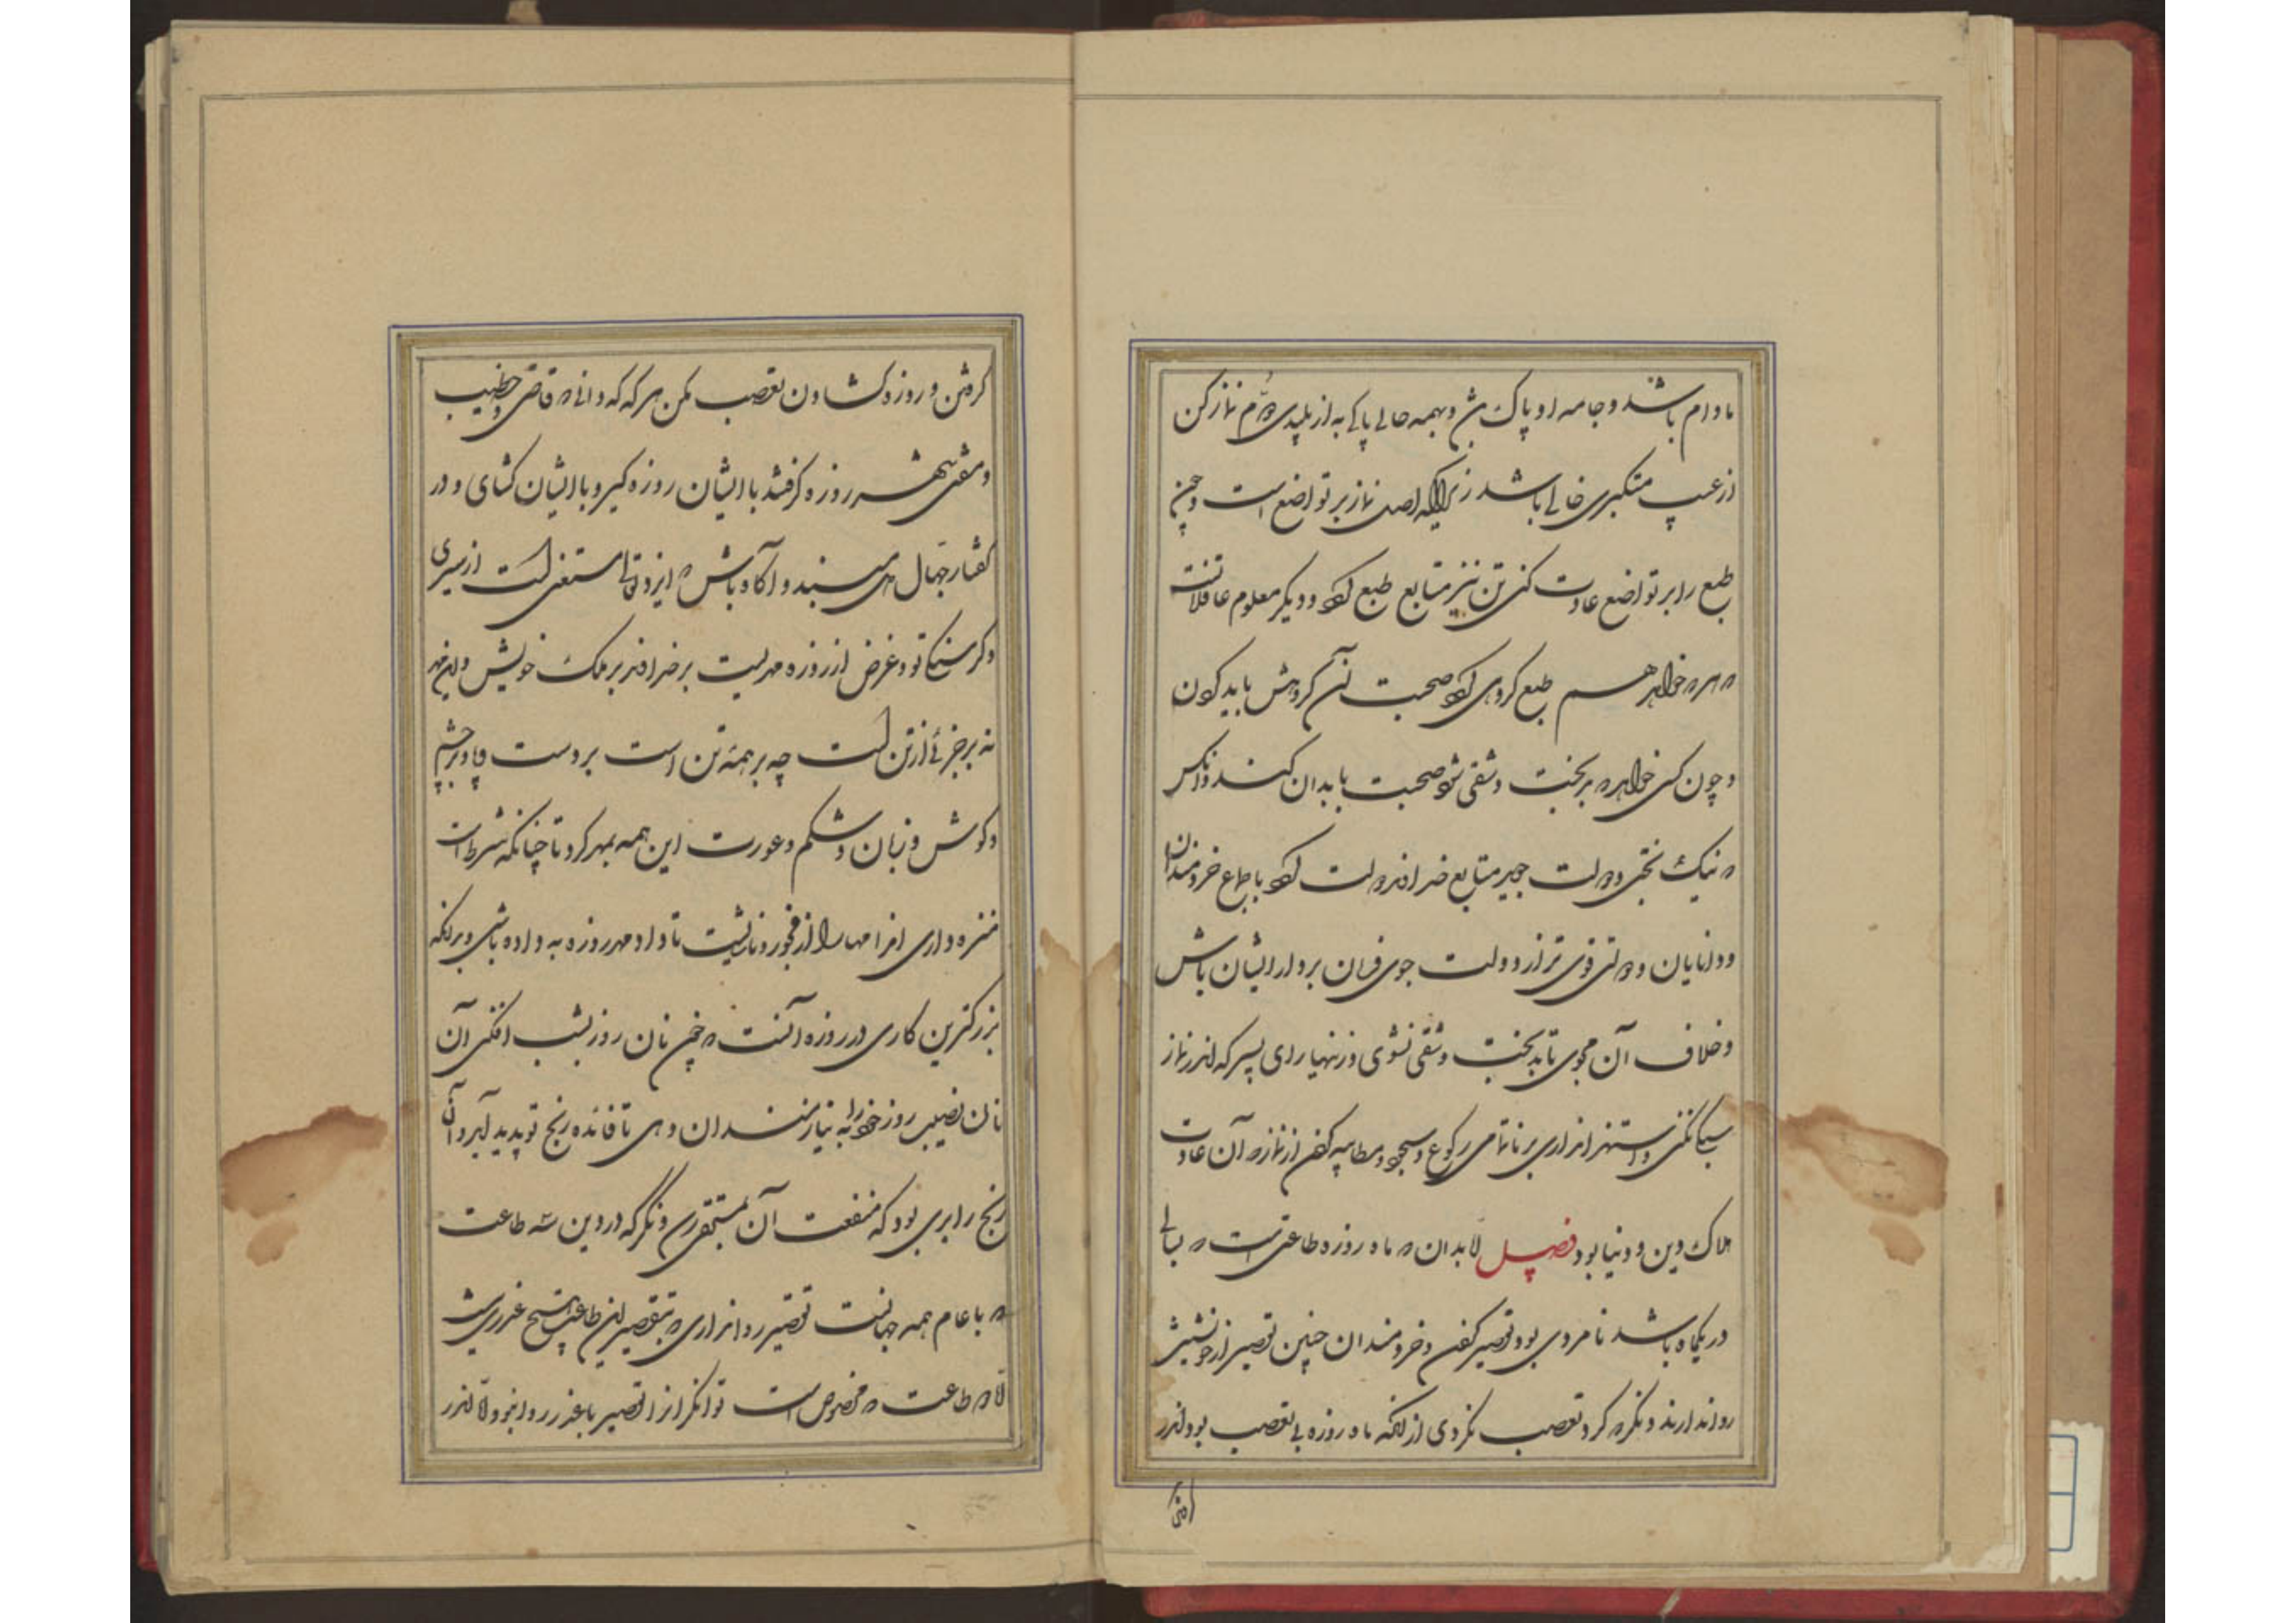 مادام باشد و جامه او پاک بود و بهمه حالی پاکی به از پلیدی و هم نماز کن
از عیب متکبری خالی باشد زیراکه اصل نماز بر تواضع است و چون
طبع را بر تواضع عادت کنی تن نیز متابع طبع بود و دیگر معلوم عاقلانست
که هر که خواهد هم طبع گروهی بود صحبت آن گروهش باید کردن
و چون کسی خواهد که بدبخت و شقی شود صحبت با بدان کند و آنکس
که نیک بختی و دولت جوید متابع خداوند دولت بود باجماع خردمندان
و دانایان دولتی قوی تر از دولت جوی فرمان بردار ایشان باش
و خلاف آن مجوی تا بدبخت و شقی نشوی و زنهار ای پسر که اندر نماز
سبکی نکنی و استهزا نداری بر ناتمامی رکوع و سجود و مطایبه کردن از نماز که آن عادت
هلاک دین و دنیا بود فصل بدان که ماه روزه طاعتی است که بسالی
در یکماه باشد نامردی بود تقصیر کردن و خردمندان چنین تقصیر از خویشتن
روا ندارند و نگر که گرد تعصب نگردی از آنکه ماه روزه بی تعصب بود اندر
گرفتن
گرفتن و روزه گشادن تعصب مکن هر گه که دانی که قاضی و خطیب
و مفتی شهر روزه گرفتند با ایشان روزه گیر و با ایشان گشای و در
گفتار جهال مبند و آگاه باش که ایزد تعالی مستغنی است از سیری
و گرسنگی تو و غرض از روزه مهریست بر خداوند بر ملک خویش و این مهر
نه بر جزئی از تن است چه بر همه تن است بر دست و پا و بر چشم
و گوش و زبان و شکم و عورت این همه بمهر کرد تا چنانکه شرط است
منزه داری اندامها را از فجور و ناشایست تا داد مهر روزه به داده باشی و بدانکه
بزرگترین کاری در روزه آنست که چون نان روز بشب افکنی آن
نان نصیب روز خود را به نیازمندان دهی تا فائده رنج تو پدید آید و آن
رنج را بری بود که منفعت آن بمستحق رسد و نگر که در دین سه طاعت
که با عام همه جهانست تقصیر روا نداری که بتقصیر این طاعت هیچ عذری نیست
الا در طاعت که مخصوص است توانگرانرا تقصیر با عذر روا بود والا اندر